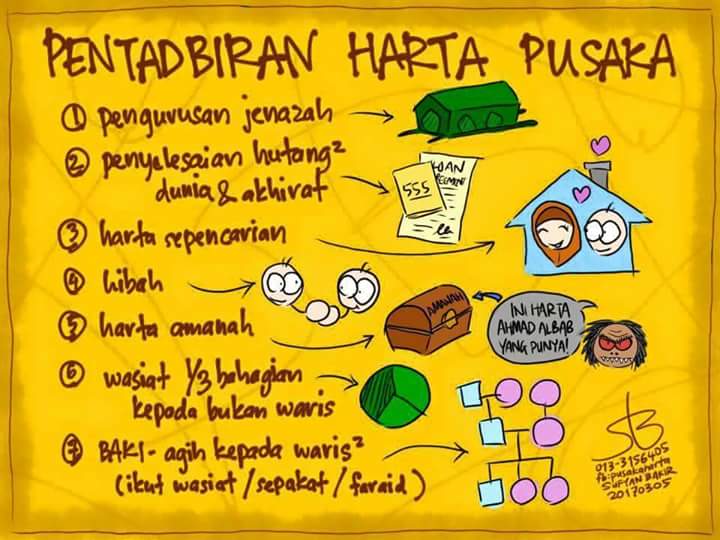 PENTADBIRAN HARTA PUSAKA
1 pengurusan jenazah
2 penyelesaian hutang²
dunia & akhirat
555
LOAN
3 harta sepencarian
4 hibah
5 harta amanah
AMANAH
INI HARTA
AHMAD ALBAB
YANG PUNYA!
6 wasiat 1/3 bahagian
kepada bukan waris
7 BAKI - agih kepada waris²
(ikut wasiat / sepakat / faraid)
013-3156405
fb:pusakaharta
SUFYAN BAKIR
20170305